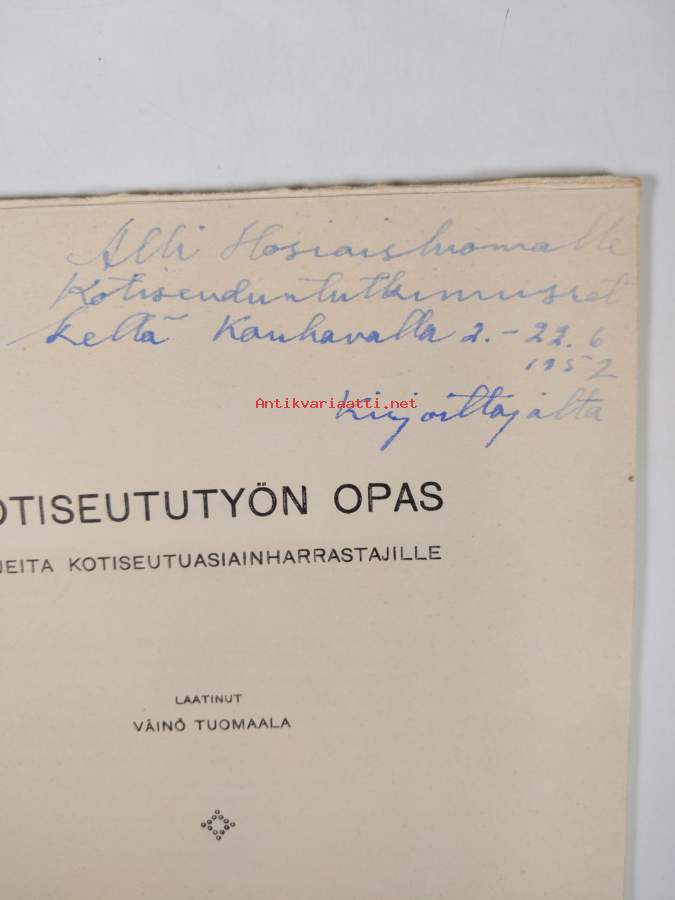 Alli Hosiaisluomalle
Kotiseuduntutkimusret
keltä Kauhavalla 2.–22.6
1952
Kirjoittajalta
Antikvariaatti.net
OTISEUTUTYÖN OPAS
EITA KOTISEUTUASIAINHARRASTAJILLE
LAATINUT
VÄINÖ TUOMAALA